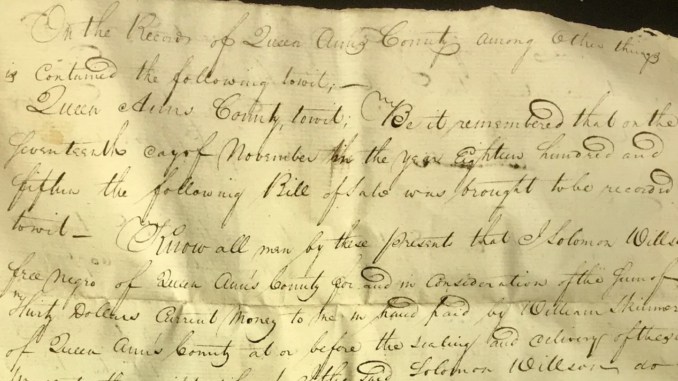 On the Records of Queen Anns County among Other things
is Contained the following towit,—
Queen Anns County, towit; Be it remembered that on the
Seventeenth day of November in the year Eighteen hundred and
fifteen the following Bill of Sale was brought to be recorded
towit— Know all men by these Presents that I Solomon Willson
free negro of Queen Ann's County for and in Consideration of the Sum of
Thirty Dollars Current Money to me in hand paid by William Skinner
of Queen Ann's County at or before the sealing and delivery of these
the said Solomon Willson do